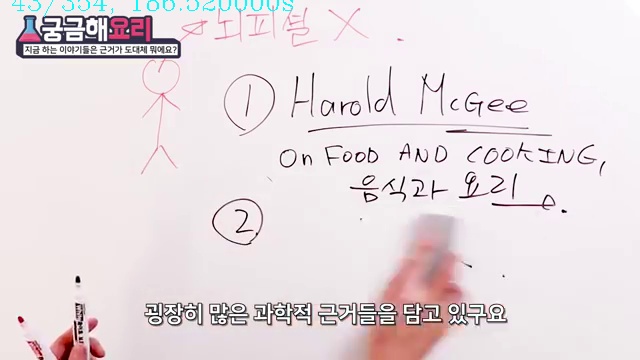 43/354, 186.520000s
궁금해요리
지금 하는 이야기들은 근거가 도대체 뭐에요?
뇌피셜 X
① Harold McGee
On FOOD AND COOKING,
음식과 요리
②
굉장히 많은 과학적 근거들을 담고 있구요